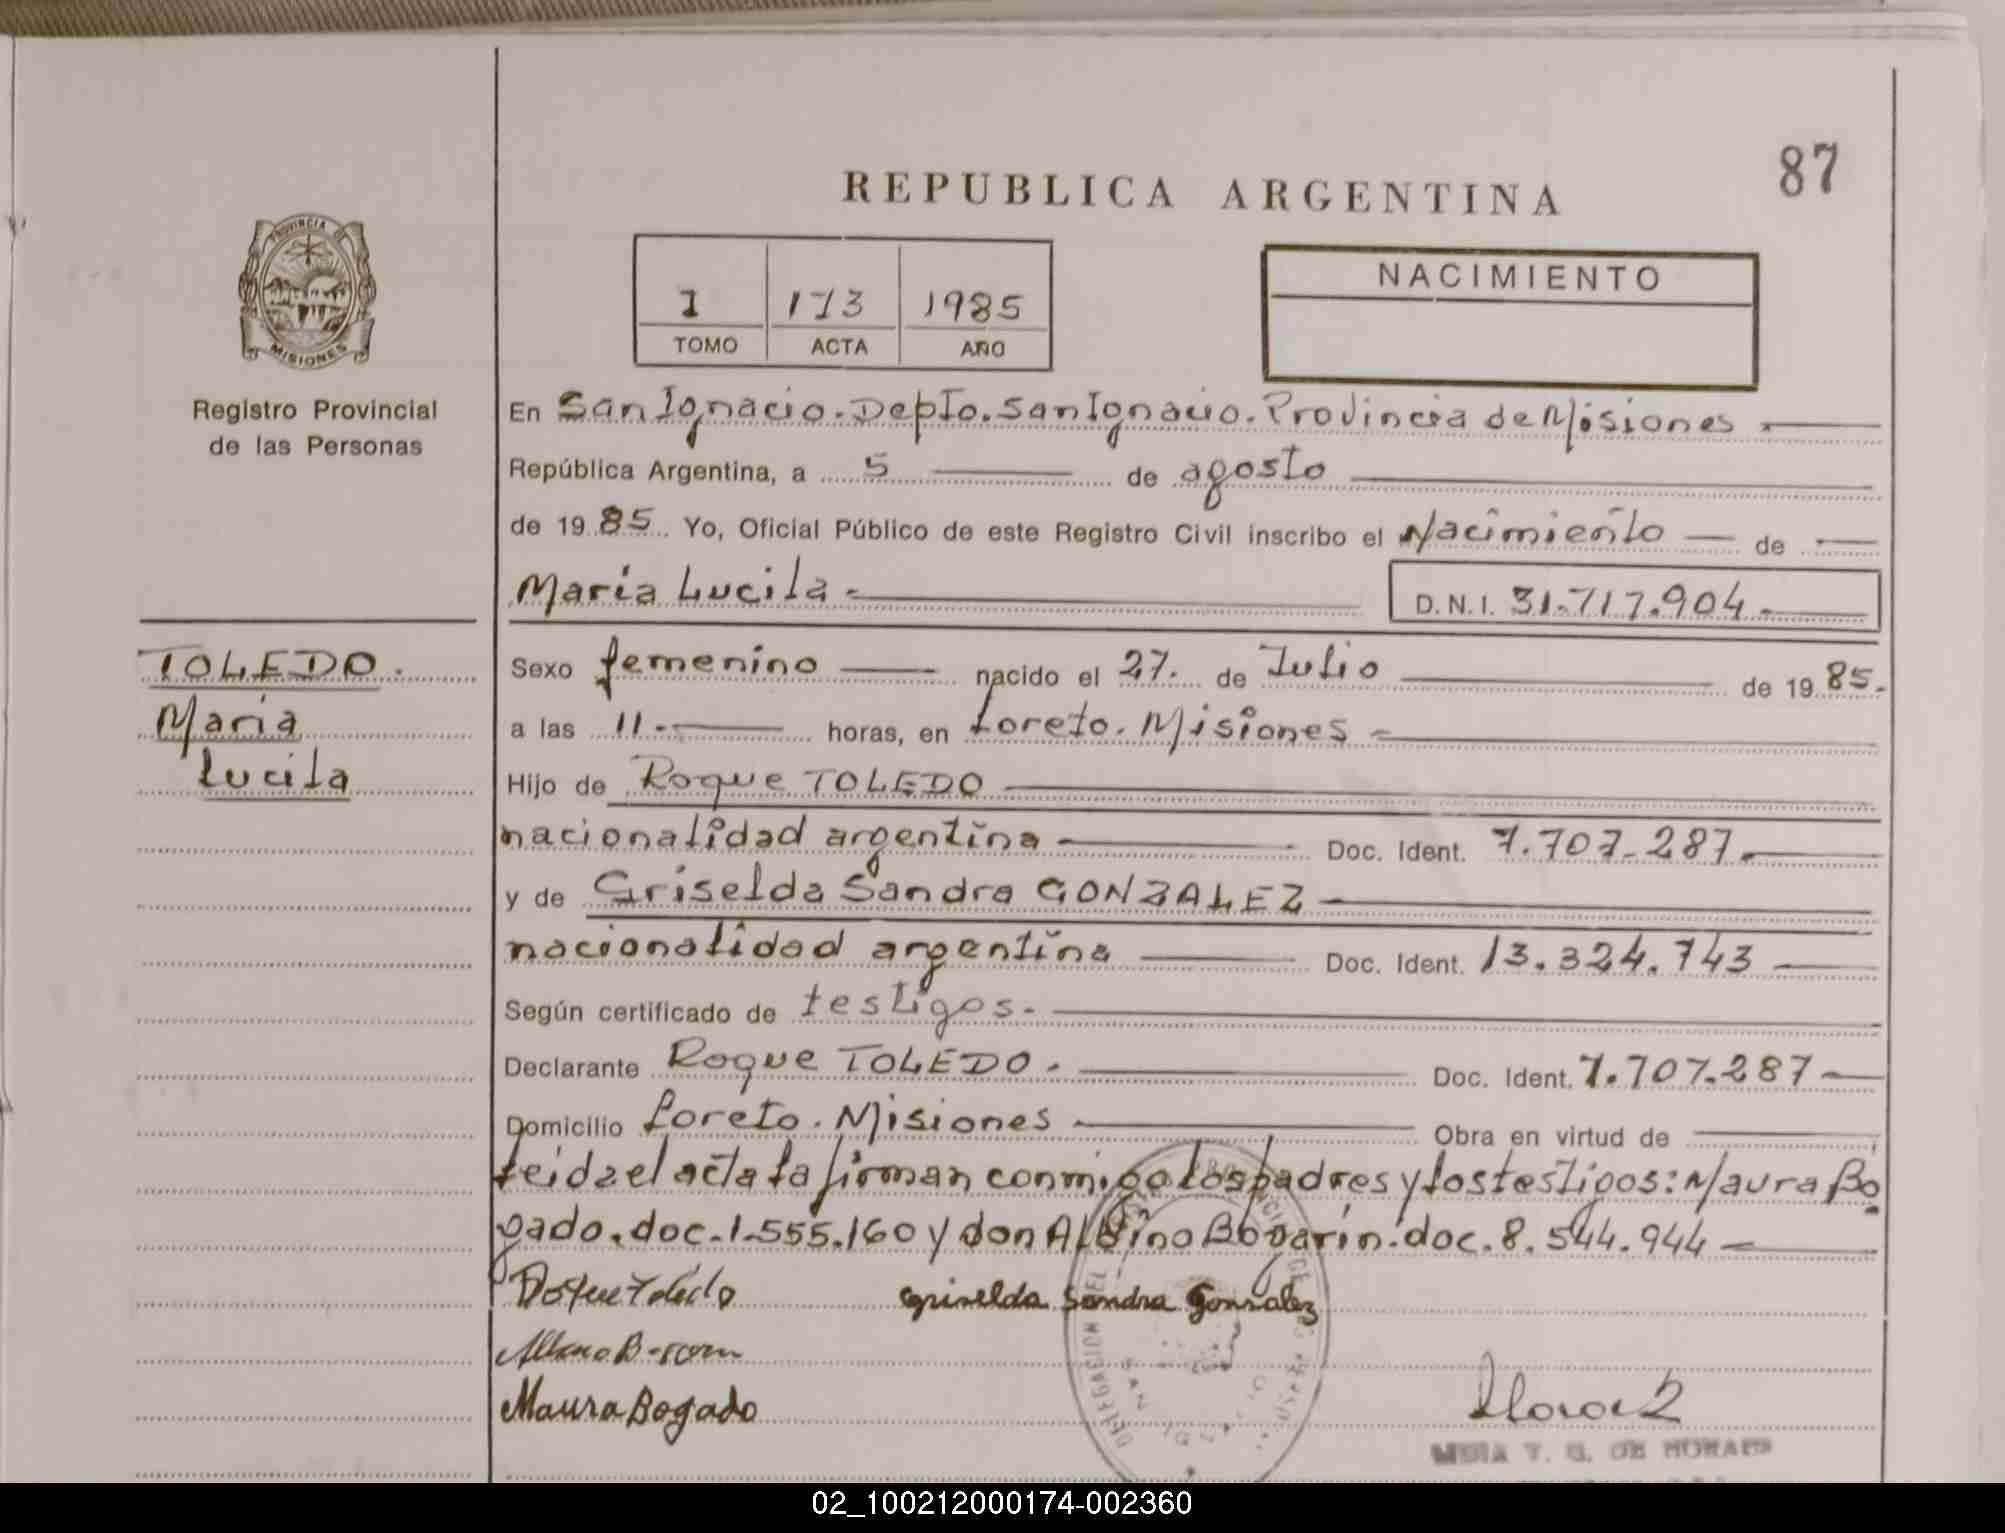 87
REPUBLICA ARGENTINA
PROVINCIA DE
MISIONES
Registro Provincial
de las Personas
I 173 1985
TOMO ACTA AÑO
NACIMIENTO
En San Ignacio. Depto. San Ignacio. Provincia de Misiones
República Argentina, a 5 de agosto
de 1985 Yo, Oficial Público de este Registro Civil inscribo el Nacimiento de
María Lucila D.N.I. 31.717.904
TOLEDO.
María
Lucila
Sexo femenino nacido el 27. de Julio de 1985.
a las 11 horas, en Loreto. Misiones
Hijo de Roque TOLEDO
nacionalidad argentina Doc. Ident. 7.707.287
y de Griselda Sandra GONZALEZ
nacionalidad argentina Doc. Ident. 13.324.743
Según certificado de testigos.
Declarante Roque TOLEDO. Doc. Ident. 7.707.287
Domicilio Loreto. Misiones Obra en virtud de
leida el acta la firman conmigo los padres y los testigos: Maura Bo
gado. doc. 1.555.160 y don Albino Bogarín. doc. 8.544.944
Roque Toledo Griselda Sandra Gonzalez
Maura Bogado
DELEGACION DEL
V. G. DE MORAES
02_100212000174-002360